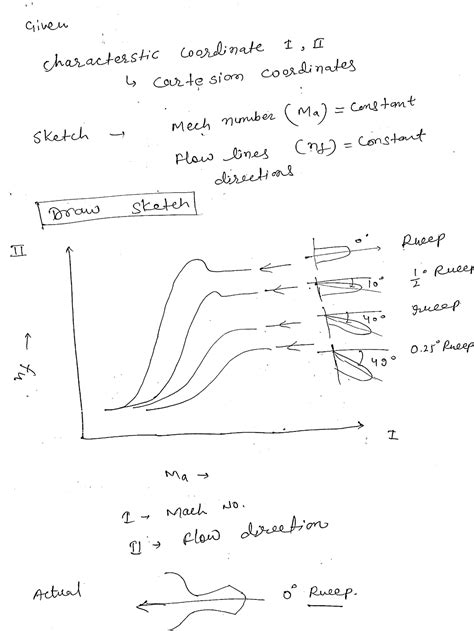 Given
Characterstic Coordinate I, II
↳ Cartesion coordinates
Sketch → Mech number (Ma) = Constant
Flow lines (nf) = Constant
directions
Draw Sketch
II
0° Rueep
10° 1/2° Rueep
40°
49° 0.25° Rueep
I
Ma →
I → Mach No.
II → Flow direction
Actual
0° Rueep.